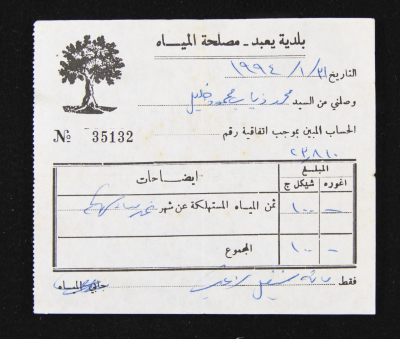 بلدية يعبد - مصلحة الميـاه
التاريخ ٣١ / ١ / ١٩٩٤
وصلني من السيد محمد ذياب محمود خليل
الحساب المبين بموجب اتفاقية رقم
№ 35132
٢٣٨١٠
المبلغ ايضاحات
اغوره شيكل ج
ثمن المياه المستهلكة عن شهر
- ١٠٠
المجموع
- ١٠٠
فقط مائة شيقل لا غير
جابي المياه